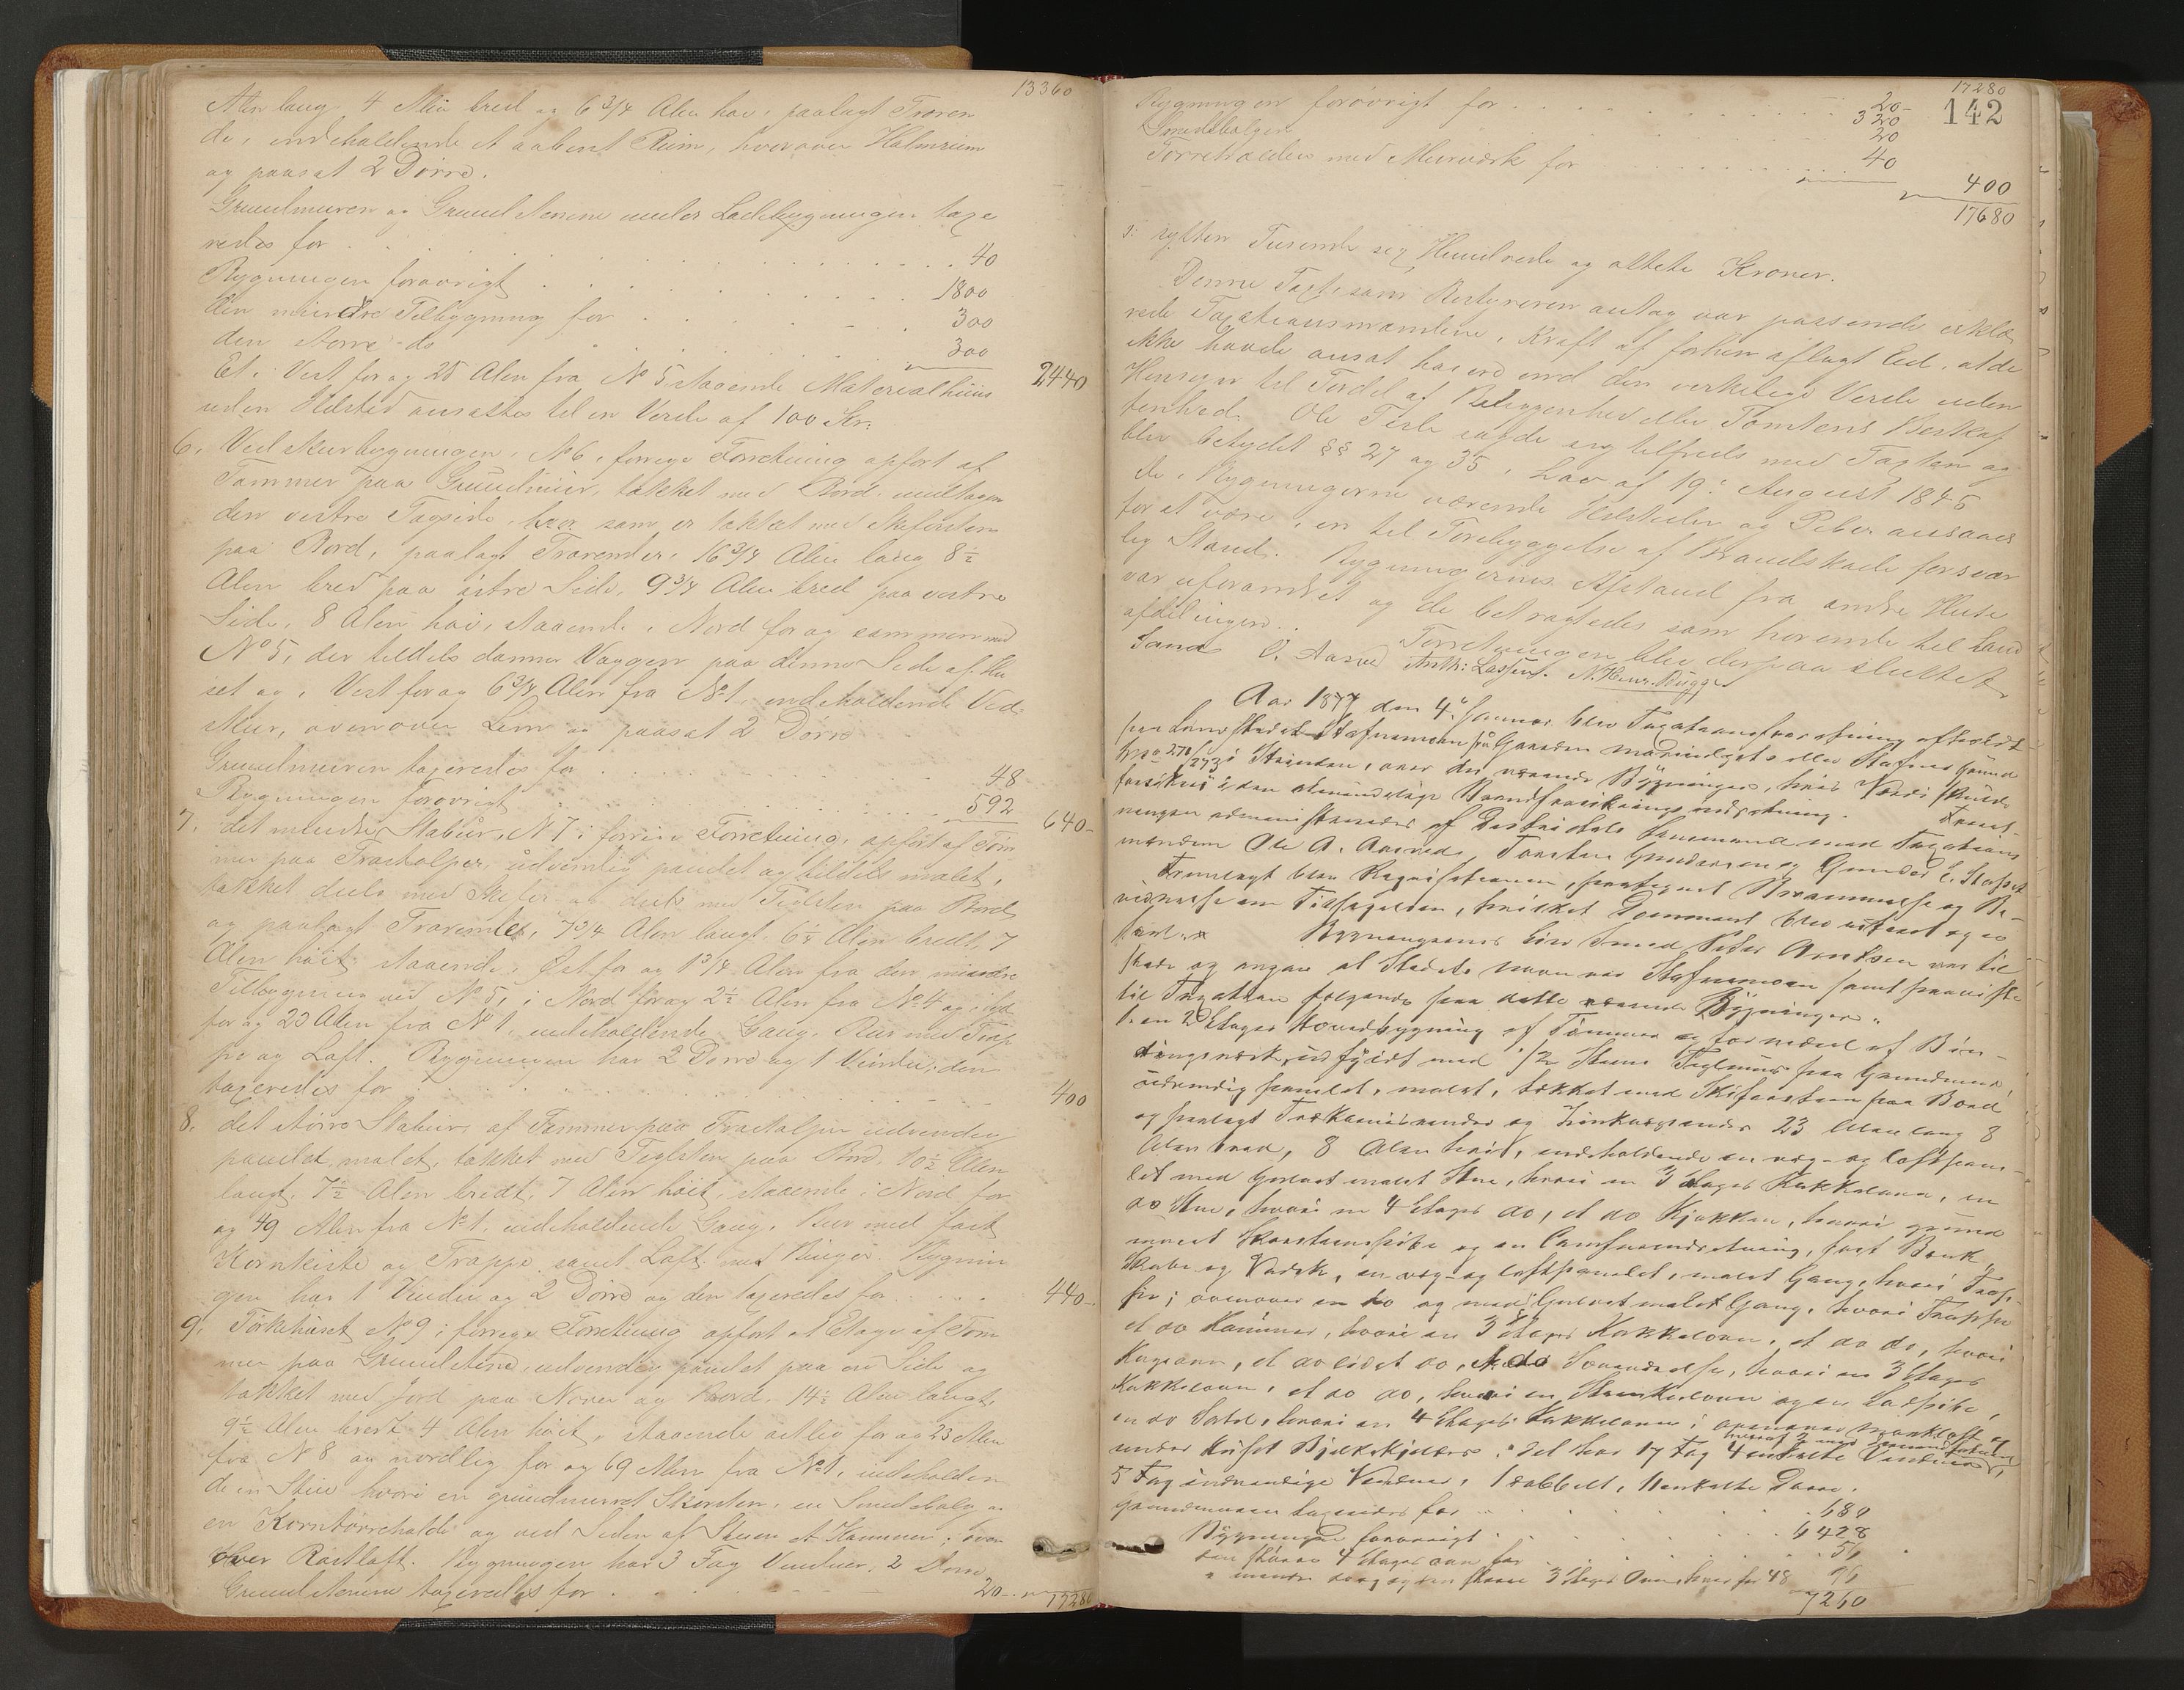 13360
Alen lang 4 Alen bred og 6 3/4 Alen høi, paalagt Træren
de, indeholdende et aabent Rum, hvorover Halmrum
og paasat 2 Dørre.
Grundmuren og Grund Stenene under Ladebygningen taxe
redes for . . . 40
Bygningen forøvrigt . . . 1800
den mindre Tilbygning for . . . 300
den større do . . . 300
2440
Et i Vest for og 25 Alen fra No 5 staaende Materialhuus
uden Ildsted ansattes til en Værdi af 100 Kr.
6. Ved Skurbygningen, No 6 i forrige Forretning opført af
Tømmer paa Grundmuur, tækket med Bord undtagen
den vestre Tagside, som er tækket med Skifersten
paa Bord, paalagt Trærender, 16 3/4 Alen lang 8 1/2
Alen bred paa østre Side, 9 3/4 Alen bred paa vestre
Side, 8 Alen høi, staaende i Nord for og sammen med
No 5, der tildels danner Væggen paa denne Side af Hu
set og i Vest for og 6 3/4 Alen fra No 1, indeholdende Ved
Skur, ovenover Lem og paasat 2 Dørre
Grundmuren taxeredes for . . . 48
Bygningen forøvrigt . . . 592
640-
7. det mindre Stabur, No 7 i forrige Forretning, opført af Tøm
mer paa Træstolper, udvendig panelet og tildels malet,
tækket deels med Skifer og deels med Teglsten paa Bord
og paalagt Trærender, 7 3/4 Alen langt, 6 1/4 Alen bredt, 7
Alen høit, staaende i Øst for og 1 3/4 Alen fra den mindre
Tilbygning ved No 5, i Nord for og 2 1/2 Alen fra No 4 og i Syd
for og 23 Alen fra No 1, indeholdende Gang, Bur med Trap
pe og Loft. Bygningen har 2 Dørre og 1 Vindu; den
taxeredes for . . . 400
8. det større Stabur, af Tømmer paa Træstolper udvendig
panelet, malet, tækket med Teglsten paa Bord, 10 1/2 Alen
langt, 7 1/2 Alen bredt, 7 Alen høit, staaende i Nord for
og 49 Alen fra No 1, indeholdende Gang, Bur med fast
Kornkiste og Trappe samt Loft med Binger. Bygnin
gen har 1 Vindu og 2 Dørre og den taxeredes for . . . 440-
9. Tørkehuset No 9 i forrige Forretning opført i 1 Etage af Tøm
mer paa Grundstene, udvendig panelet paa en Side og
tækket med Jord paa Næver og Bord, 14 1/2 Alen langt,
9 1/2 Alen bredt 4 Alen høit, staaende østlig for og 23 Alen
fra No 8 og nordlig for og 69 Alen fra No 1, indeholden
de en Stue hvori en grundmuret Skorsten, en Smedebælg og
en Korntørrehælde og ved Siden af Stuen et Kammer; hvor
over Røstloft. Bygningen har 3 Fag Vinduer, 2 Dørre,
Grund Stenene taxeredes for . . . 20- 17280
17280
142
Bygningen forøvrigt for . . . 20-
320
Smedebælgen 20
Tørrehælden med Murværk for . . . 40
400
17680
s: sytten Tusende sex Hundrede og otteti Kroner.
Denne Taxt, som Bestyreren antog var passende erklæ
rede Taxationsmændene, i Kraft af forhen aflagt Eed, at de
ikke havde ansat høiere end den virkelige Værdi uden
Hensyn til Fordel af Beliggenhed eller Tomtens Beskaf
fenhed. Ole Fesle sagde sig tilfreds med Taxten og
blev betydet §§ 27 og 35 i Lov af 19: August 1845
de i Bygningerne værende Ildsteder og Piber ansaaes
for at være i en til Forebyggelse af Brandskade forsvar
lig Stand. Bygningernes Afstand fra andre Huse
var uforandret og de betragtedes som hørende til Land
afdelingen. Forretningen blev derpaa sluttet
Sand O. Aasved Anth: Lassen. N. Henr. Bugge
Aar 1877 den 4de Januar blev Taxationsforretning afholdt
paa Landstedet Stafnemoen paa Gaarden Stafne Grund
No 270/273 i Strinden, over der værende Bygninger, hvis Værdi skulde
forsikres i den almindelige Brandforsikringsindretning. Forret-
ningen administreredes af Distriktets Lensmand med Taxations
mændene Ole A. Aasved, Torsten Gundersen og Gunder E. Stafset
Fremlagt blev Requisitionen, paategnet Berammelse og Be-
vidnelse om Tilsigelsen, hvilket Document blev oplæst og
Bygningernes Eier Smed Peder Arntsen var til
stede og angav at Stedets navn var Stafnemoen samt paaviste
til Taxation følgende paa dette værende Bygninger:
1. en 2 Etages Hovedbygning af Tømmer og for nedre af Bin-
dingsværk, udfyldt med 1/2 Steens Teglmuur paa Grundmuur,
udvendig panelet, malet, tækket med Skifersteen paa Bord
og paalagt Trætagrender og Zinktagrender 23 Alen lang 8
Alen bred, 8 Alen høi, indeholdende en væg- og loftpane-
let med Gulvet malet Stue, hvori en 3 Etages Kakkelovn, en
do Stue, hvori en 4 Etages do, et do Kjøkken, hvori grund
muret Skorsteenspibe og en Comfurindretning, fast Bænk,
Skabe og Vadsk, en væg- og loftpanelet, malet Gang, hvori Trap-
pe; ovenover en do og med Gulvet malet Gang, hvori Trappe
et do Kammer, hvori en 3 Etages Kakkelovn, et do do, hvori
Bageovn, et do lidet do, et do Soveværelse, hvori en 3 Etages
Kakkelovn, et do do, hvori en Steenkulovn og en Ladpibe,
en do Sahl, hvori en 4 Etages Kakkelovn; ovenover mørkloft og
under Huset Bjelkekjelder. Det har 17 Fag 4 enkelte Vinduer,
5 Fag indvendige Vinduer, 1 dobbelt, 11 enkelte Dørre.
Grundmuren taxeredes for . . . 680
Bygningen forøvrigt . . . 6428
den større 4 Etages ovn for . . . 56
" mindre do og den største 3 Etages Ovn, hver for 48 96
7260